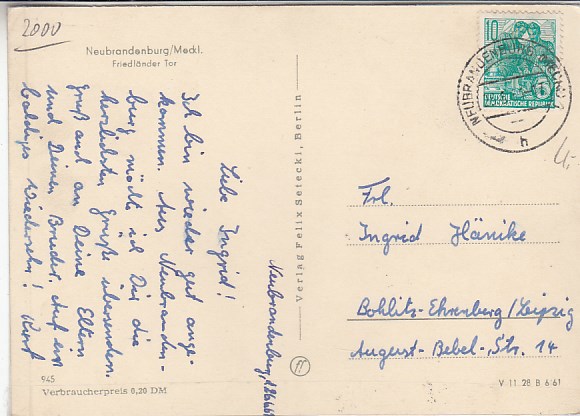 2000
Neubrandenburg/Meckl.
Friedländer Tor
Neubrandenburg,
Liebe Ingrid!
Ich bin wieder gut ange-
kommen. Aus Neubranden-
burg möchte ich Dir die
herzlichsten Grüße übersenden.
Gruß auch an Deine Eltern
und Deinen Bruder. Auf ein
baldiges Wiedersehn! Kurt
945
Verbraucherpreis 0,20 DM
Verlag Felix Setecki, Berlin
10
DEUTSCHE
DEMOKRATISCHE REPUBLIK
h
Frl.
Ingrid Hänike
Bohlitz-Ehrenberg/Leipzig
August-Bebel-Str. 14
V 11 28 B 6/61